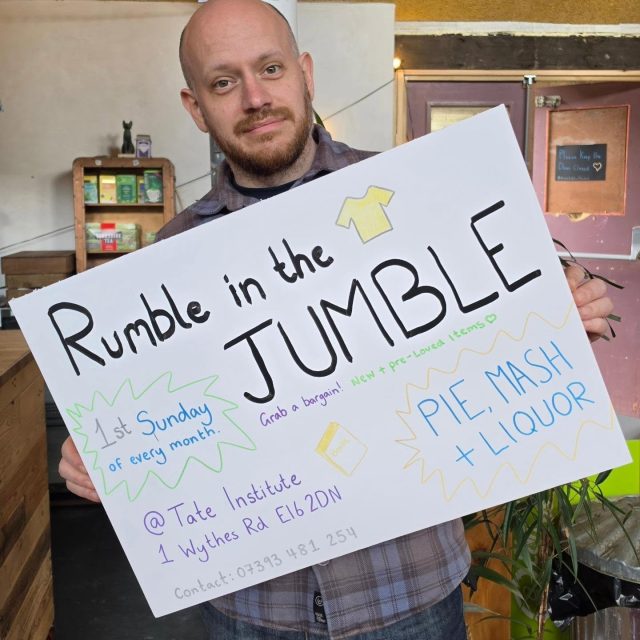 Please Keep the
Door Closed ♡
Rumble in the
JUMBLE
Grab a bargain! New + pre-Loved items ♡
1st Sunday
of every month.
PIE, MASH
+ LIQUOR
@ Tate Institute
1 Wythes Rd E16 2DN
Contact: 07393 481 254